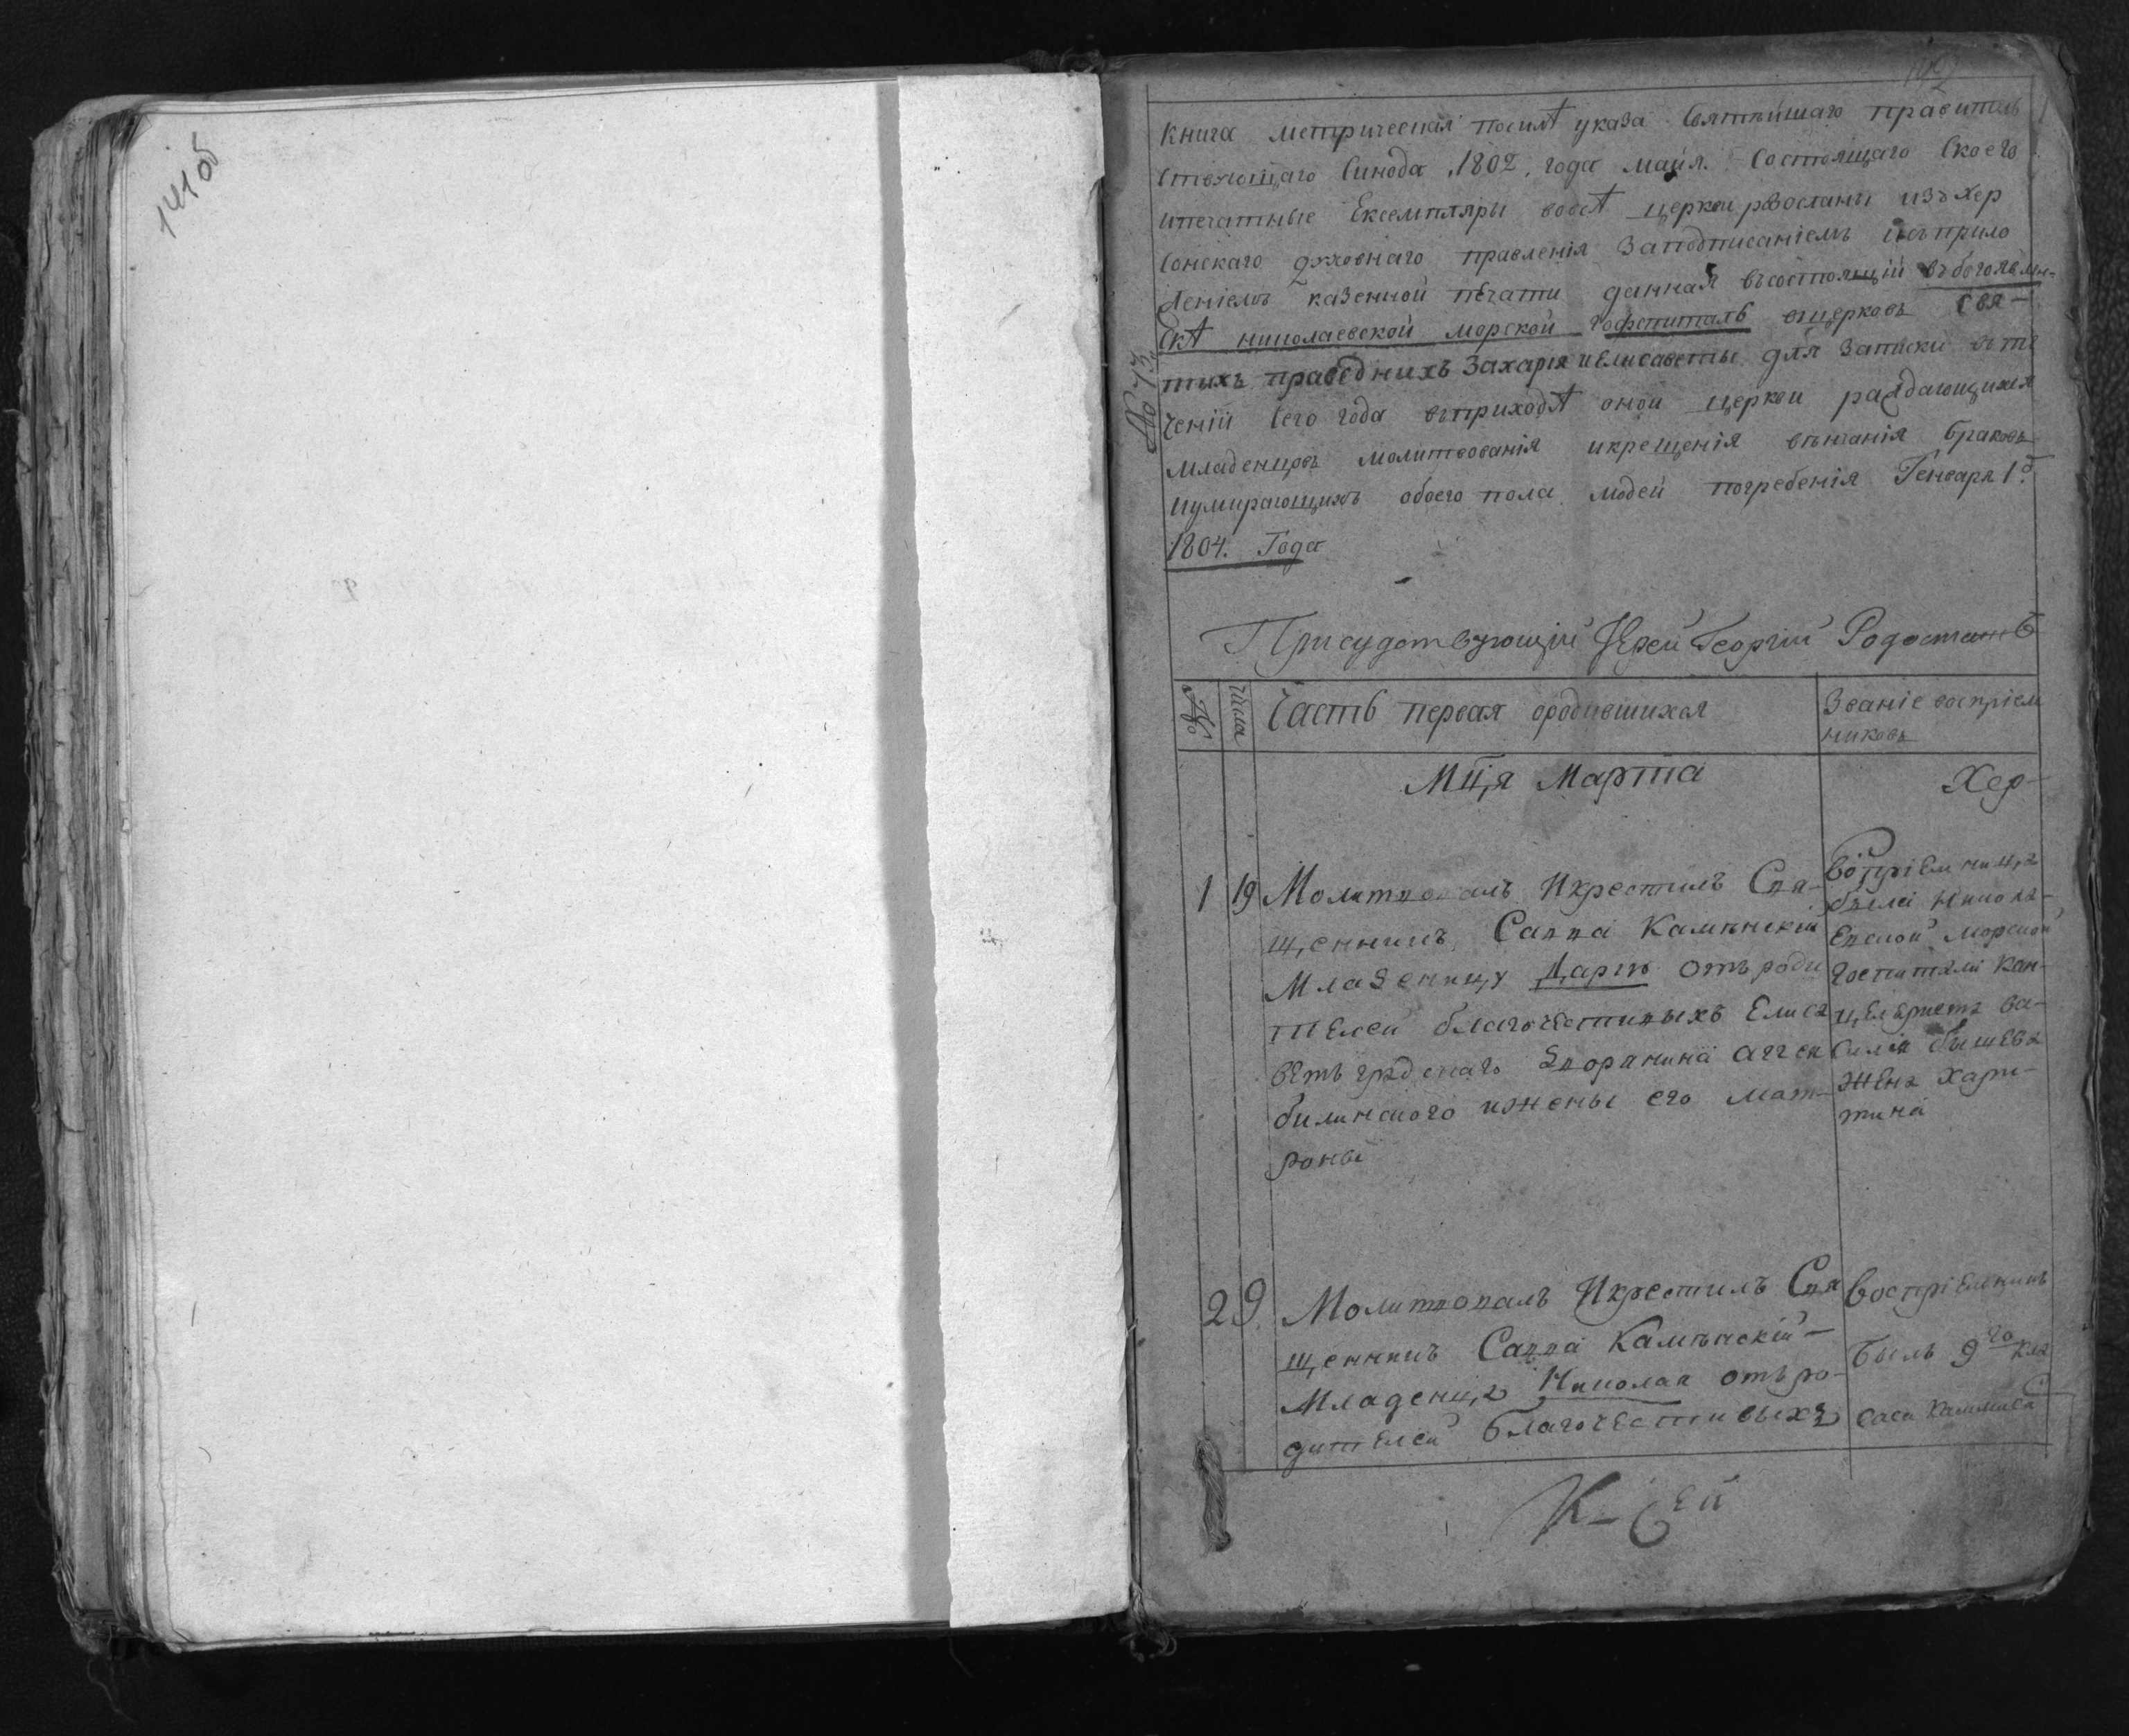 141об
142
Книга метрическая посилѣ указа Святѣйшаго правитель
ствующаго Синода 1802. года майя. Состоящаго Скоего
ипечатные Екземпляры вовсѣ церкви розосланы изъ Хер
сонскаго духовнаго правленія Заподписаніемъ исъприло
женіемъ казенной печати данная въсостоящій въ богоявлен-
скѣ николаевской морской гофспиталь вцерковь Свя-
тыхъ праведнихъ Захарія иЕлисаветы для Записки втѣ
ченіи Сего года въприходѣ оной церкви раждающихся
младенцовъ молитвованія икрещенія вѣнчанія браковъ
иумирающихъ обоего пола людей погребенія Генваря 1д.
1804. Года
№ 13.
Присудствующій Іерей Георгій
№ Числа Часть первая ородившихся Званіе воспріем
никовъ
Мця Марта Хер-
1 19 Молитвовалъ Икрестилъ Свя-
щенникъ Савва Камѣнскій
Младеницу Дарію отъ роди
телей благочестивыхъ Елиса
ветъ градскаго Дворянина
билинского ижены его Мат-
роны
Воспріемница
была Никола-
евской Морской
госпитали Кан-
целяриста Ва-
силія
Жена Хари-
тина
2 9. Молитвовалъ Икрестилъ Свя
щенникъ Савва Камѣнскій-
Младенца Николая отъ ро-
дителей благочестивыхъ
Воспріемникъ
Былъ 9го кла
саса
К-Сей